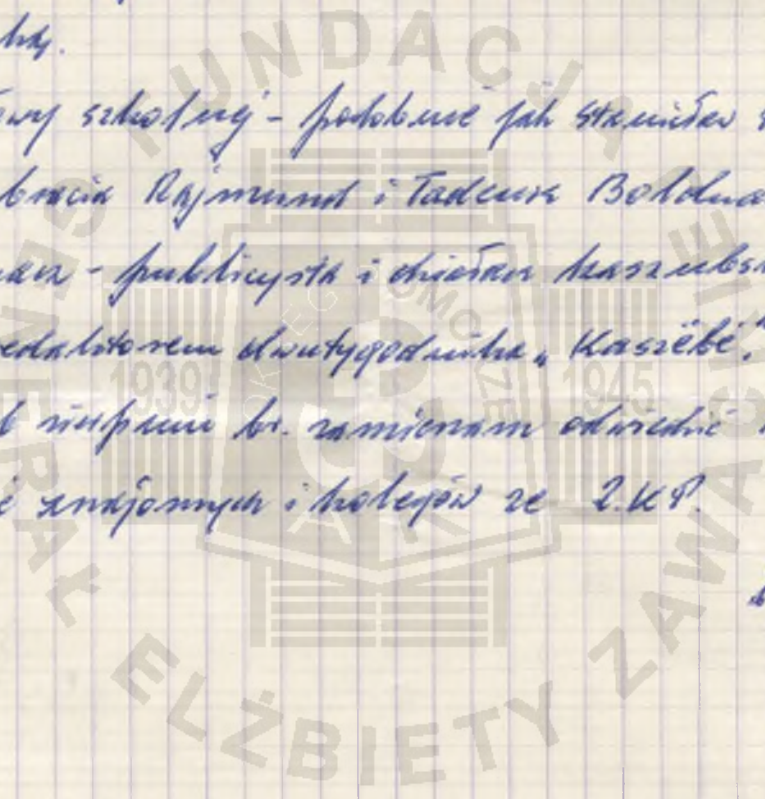 szkolnej - podobnie jak Stanisław
bracia Rajmund i Tadeusz Boldua
- publicysta i działacz kaszubs
redaktorem dwutygodnika „Kaszëbë."
sierpniu br. zamierzam odwiedzić
znajomych i kolegów ze 2.KP.
FUNDACJA GENERAŁ ELŻBIETY ZAWACKIEJ
1939 1945
OKRĘG POMORZE
AK